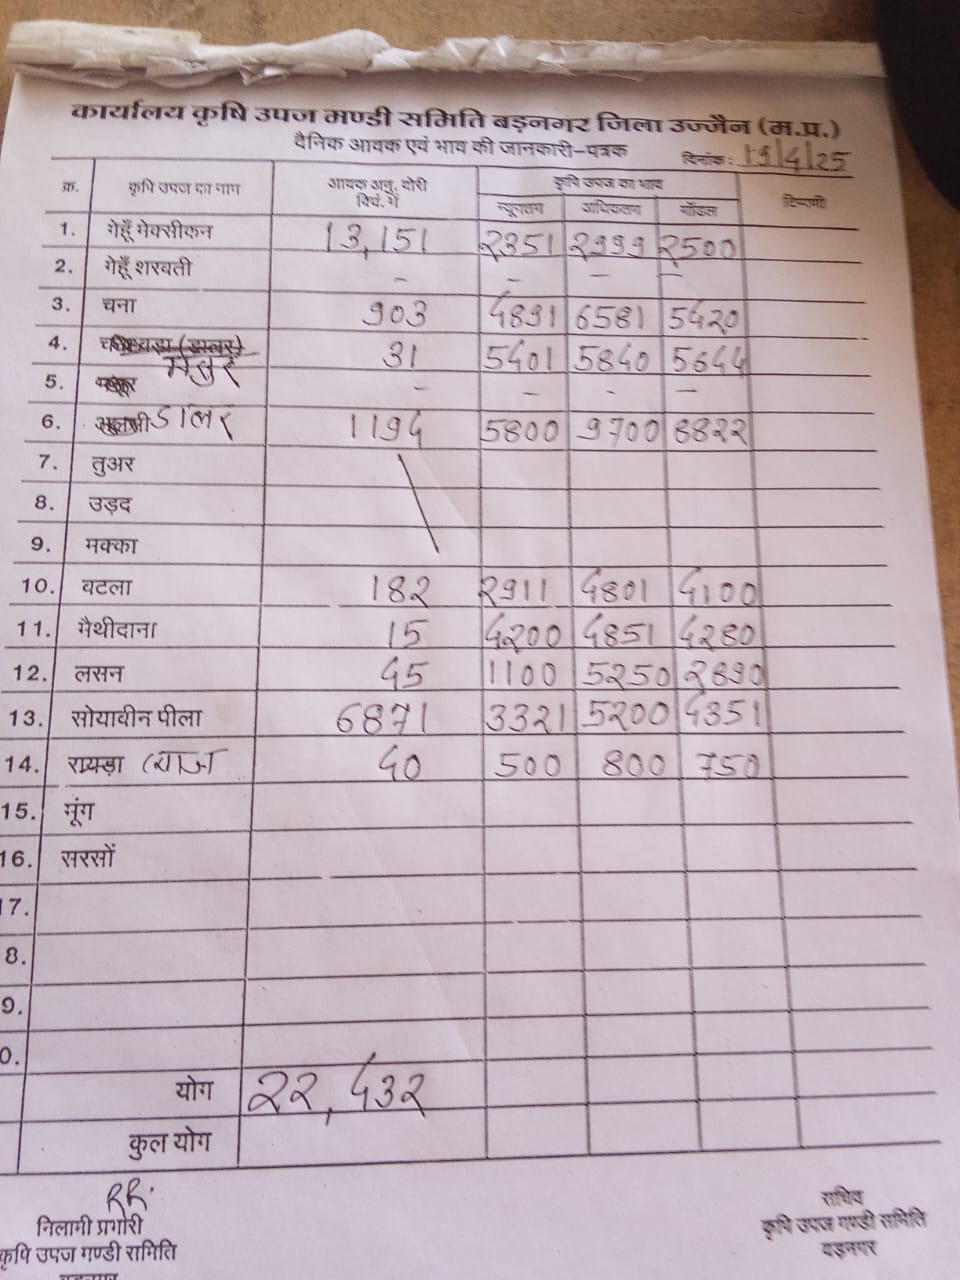 कार्यालय कृषि उपज मण्डी समिति बड़नगर जिला उज्जैन (म.प्र.)
दैनिक आवक एवं भाव की जानकारी-पत्रक दिनांक: 19/4/25
क्र. कृषि उपज का नाम आवक अनु. बोरी क्विं. में कृषि उपज का भाव टिप्पणी
न्यूनतम अधिकतम मॉडल
1. गेहूँ मेक्सीकन 13,151 2351 2999 2500
2. गेहूँ शरबती - - - -
3. चना 903 4891 6581 5420
4. मसुर 31 5401 5840 5644
5. - - - -
6. डालर 1194 5800 9700 8822
7. तुअर
8. उड़द
9. मक्का
10. बटला 182 2911 4801 4100
11. मैथीदाना 15 4200 4851 4280
12. लसन 45 1100 5250 2890
13. सोयाबीन पीला 6871 3321 5200 4351
14. रायड़ा प्याज 40 500 800 750
15. मूंग
16. सरसों
17.
8.
9.
0.
योग 22,432
कुल योग
RR.
निलामी प्रभारी सचिव
कृषि उपज मण्डी समिति कृषि उपज मण्डी समिति
बड़नगर बड़नगर